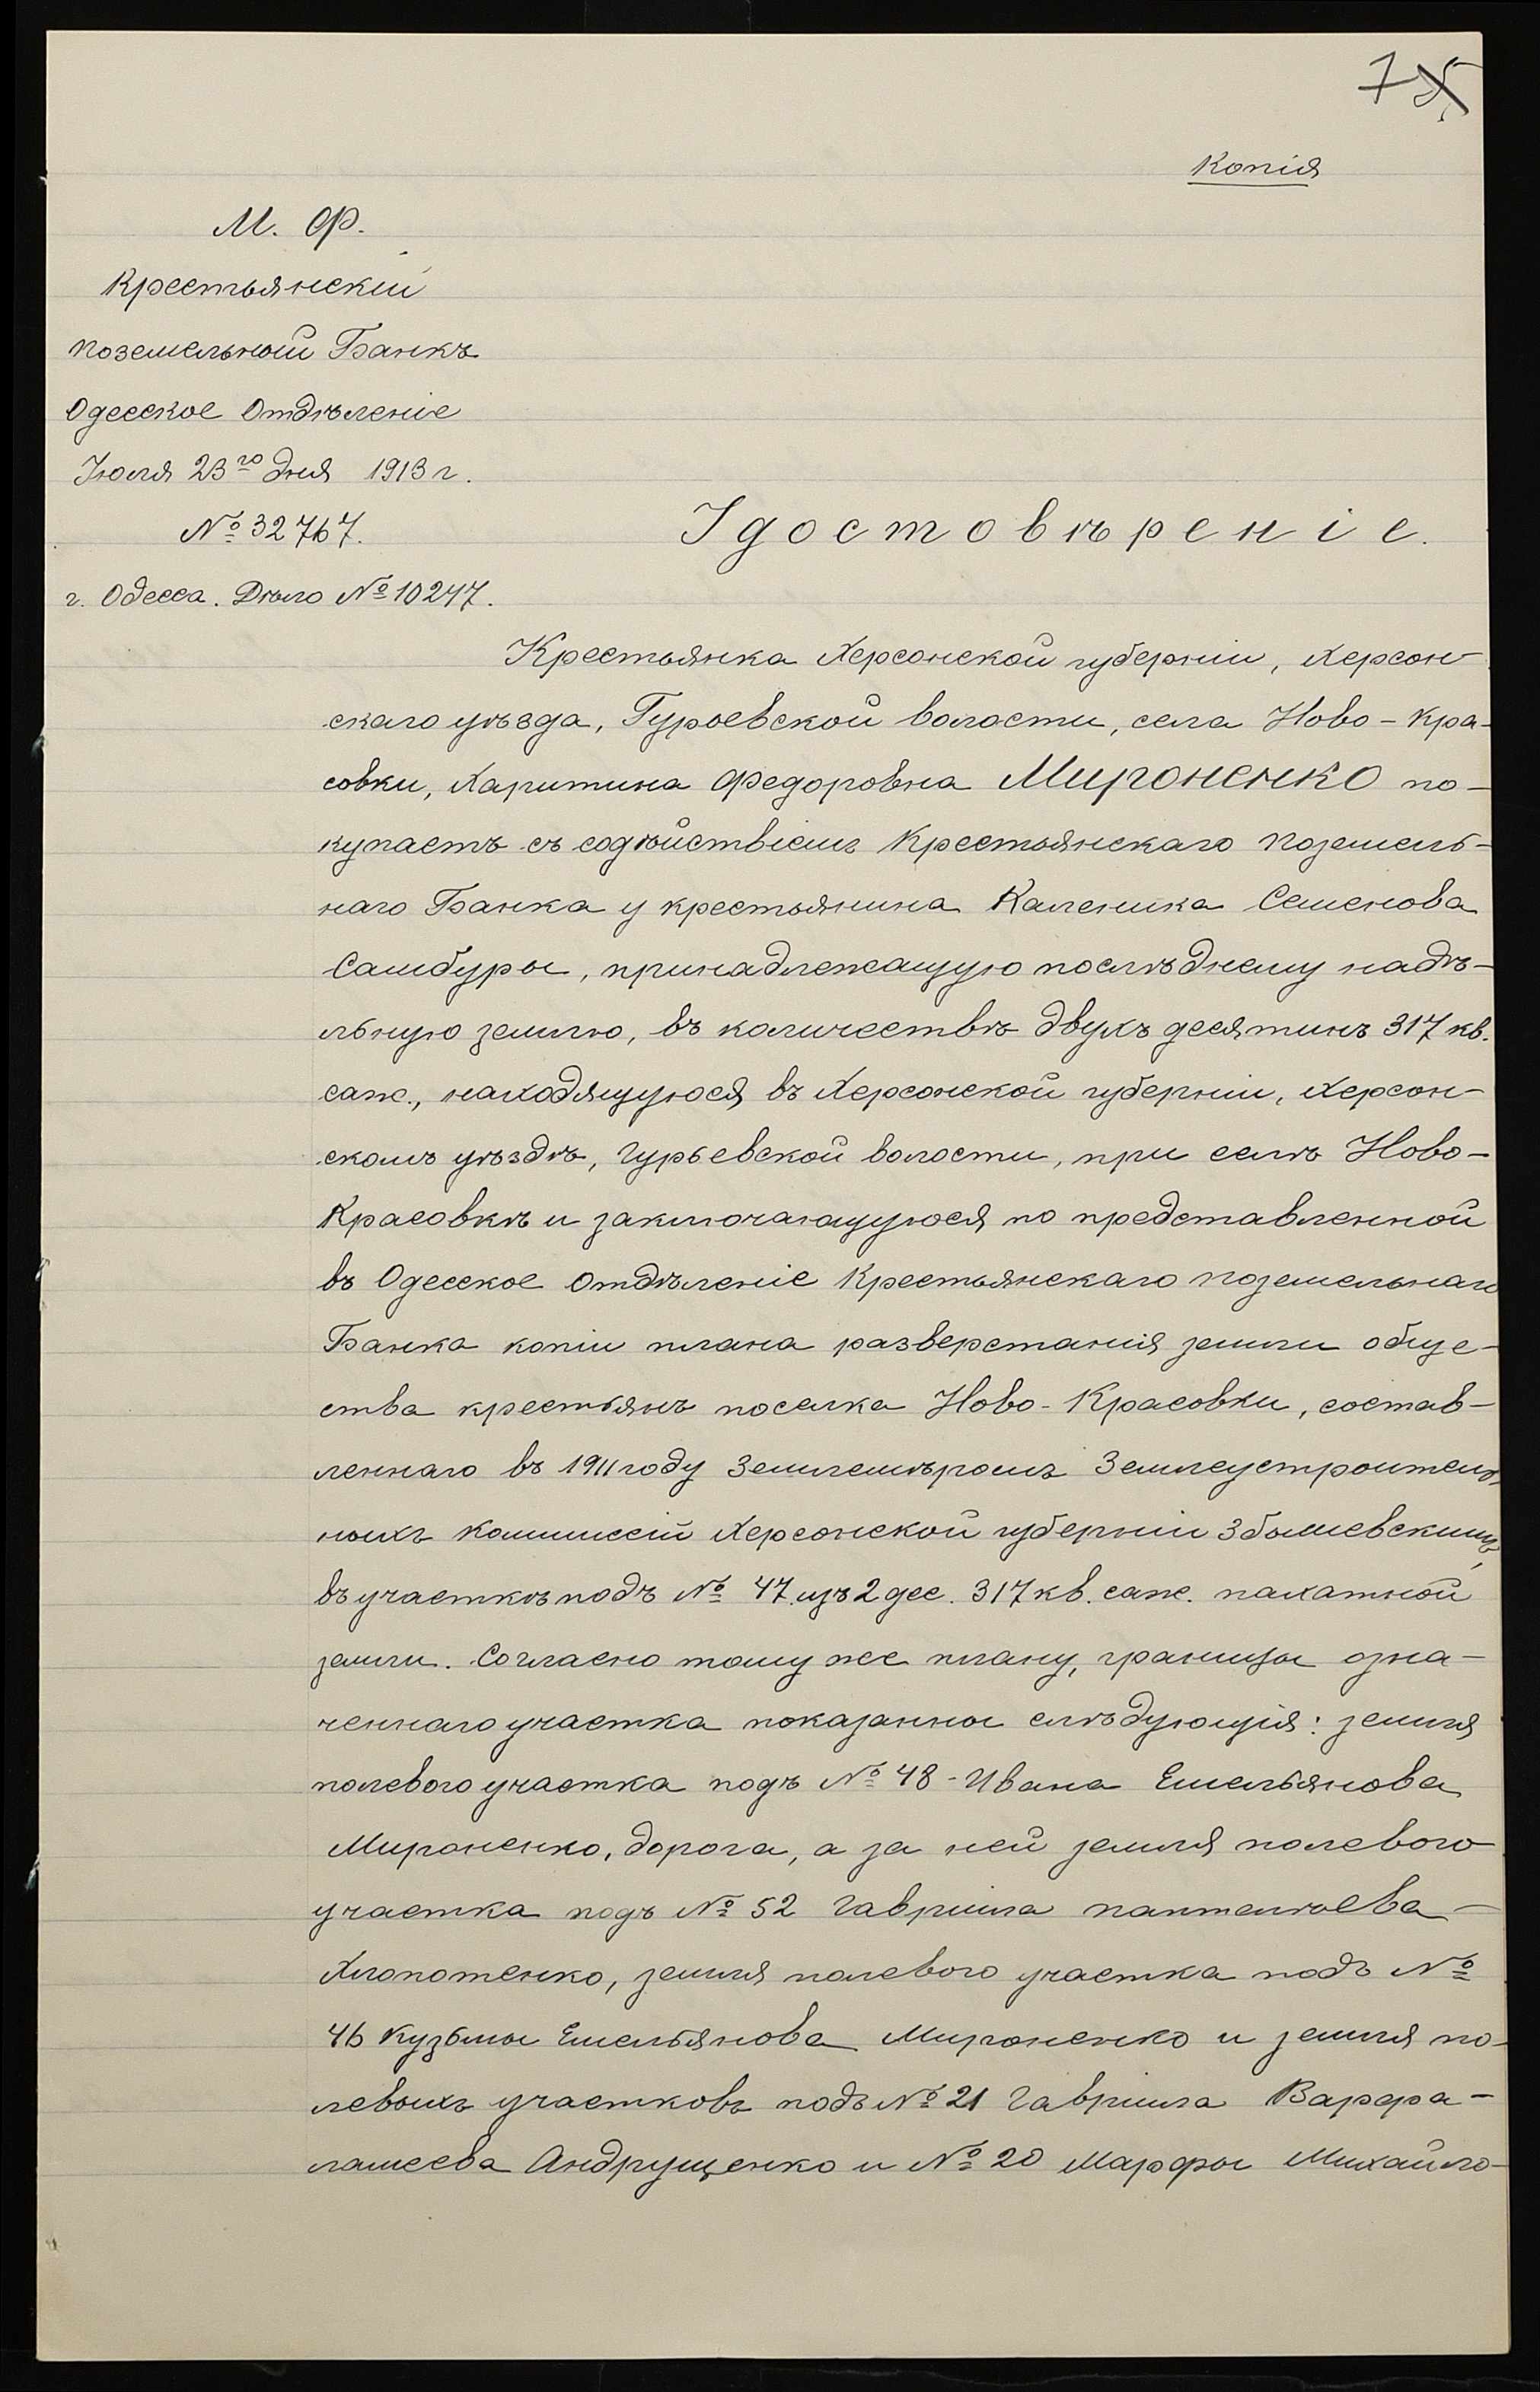 7
Копія
М. Ф.
Крестьянскій
поземельный Банкъ
Одесское Отдѣленіе
Іюля 23го дня 1913 г.
№ 32767.
г. Одесса. Дѣло № 10247.
Удостовѣреніе.
Крестьянка Херсонской губерніи, Херсон-
скаго уѣзда, Гурьевской волости, села Ново-Кра-
совки, Харитина Федоровна Мироненко по-
купаетъ съ содѣйствіемъ Крестьянскаго Поземель-
наго Банка у крестьянина Каленика Семенова
Самбуры, принадлежащую послѣднему надѣ-
льную землю, въ количествѣ двухъ десятинъ 317 кв.
саж., находящуюся въ Херсонской губерніи, Херсон-
скомъ уѣздѣ, Гурьевской волости, при селѣ Ново-
Красовкѣ и заключающуюся по представленной
въ Одесское Отдѣленіе Крестьянскаго Поземельнаго
Банка копіи плана разверстанія земли обще-
ства крестьянъ поселка Ново-Красовки, состав-
леннаго въ 1911 году Землемѣромъ Землеустроитель-
ныхъ Коммиссій Херсонской губерніи Збышевскимъ,
въ участкѣ подъ № 47. изъ 2 дес. 317 кв. саж. пахатной
земли. Согласно тому же плану, границы озна-
ченнаго участка показанны слѣдующія: земля
полевого участка подъ № 48 - Ивана Емельянова
Мироненко, дорога, а за ней земля полевого
участка подъ № 52 Гавріила Пантелѣева
Хлопотенко, земля полевого участка подъ №
46 Кузьмы Емельянова Мироненко и земля по-
левыхъ участковъ подъ № 21 Гавріила Варфа-
ламеева Андрущенко и № 20 Марфы Михайло-